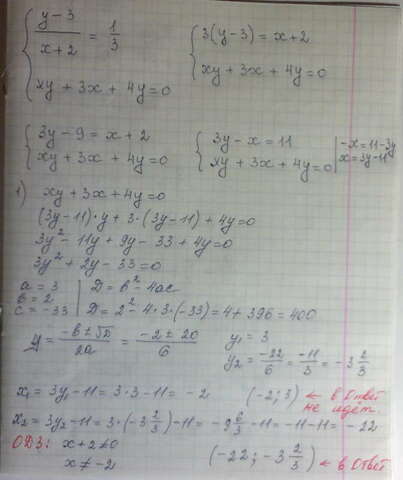 { (y-3)/(x+2) = 1/3
xy + 3x + 4y = 0
{ 3(y-3) = x+2
xy + 3x + 4y = 0
{ 3y - 9 = x + 2
xy + 3x + 4y = 0
{ 3y - x = 11
xy + 3x + 4y = 0
| -x = 11-3y
x = 3y-11
1) xy + 3x + 4y = 0
(3y-11)·y + 3·(3y-11) + 4y = 0
3y² - 11y + 9y - 33 + 4y = 0
3y² + 2y - 33 = 0
a = 3 | D = b² - 4ac
b = 2
c = -33 | D = 2² - 4·3·(-33) = 4 + 396 = 400
y = (-b ± √D)/2a = (-2 ± 20)/6
y₁ = 3
y₂ = -22/6 = -11/3 = -3 2/3
x₁ = 3y₁ - 11 = 3·3 - 11 = -2 (-2; 3) ← в ответ
не идет.
x₂ = 3y₂ - 11 = 3·(-3 2/3) - 11 = -9 6/3 - 11 = -11 - 11 = -22
ОДЗ: x + 2 ≠ 0
x ≠ -2
(-22; -3 2/3) ← в ответ